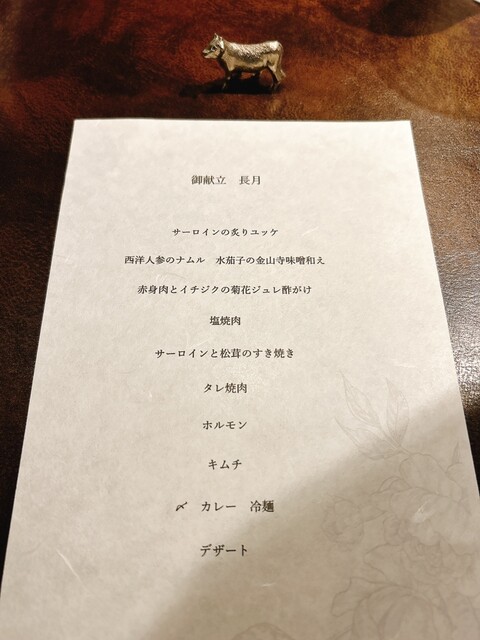 御献立　長月
サーロインの炙りユッケ
西洋人参のナムル　水茄子の金山寺味噌和え
赤身肉とイチジクの菊花ジュレ酢がけ
塩焼肉
サーロインと松茸のすき焼き
タレ焼肉
ホルモン
キムチ
〆　カレー　冷麺
デザート